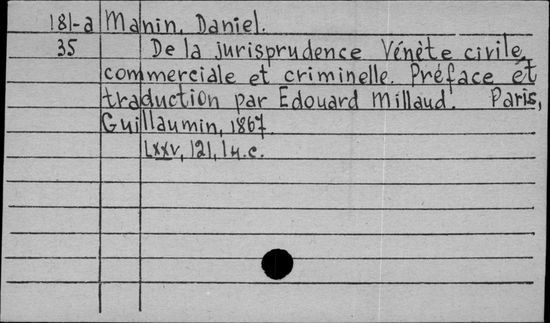 181-a Manin, Daniel.
35 De la jurisprudence Vénète civile,
commerciale et criminelle. Préface et
traduction par Edouard Millaud. Paris,
Guillaumin, 1867.
LXXV, 121, 1 H.C.